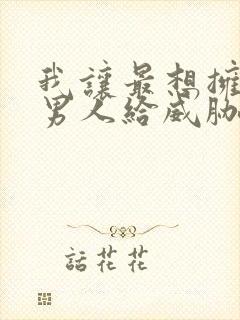 我讓最想擁
男人給威脅
話花花